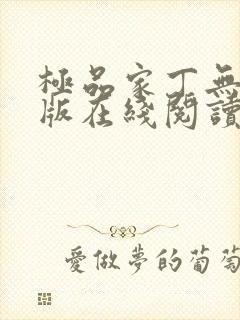 極品家丁無
版在綫閱讀
愛做夢的葡萄